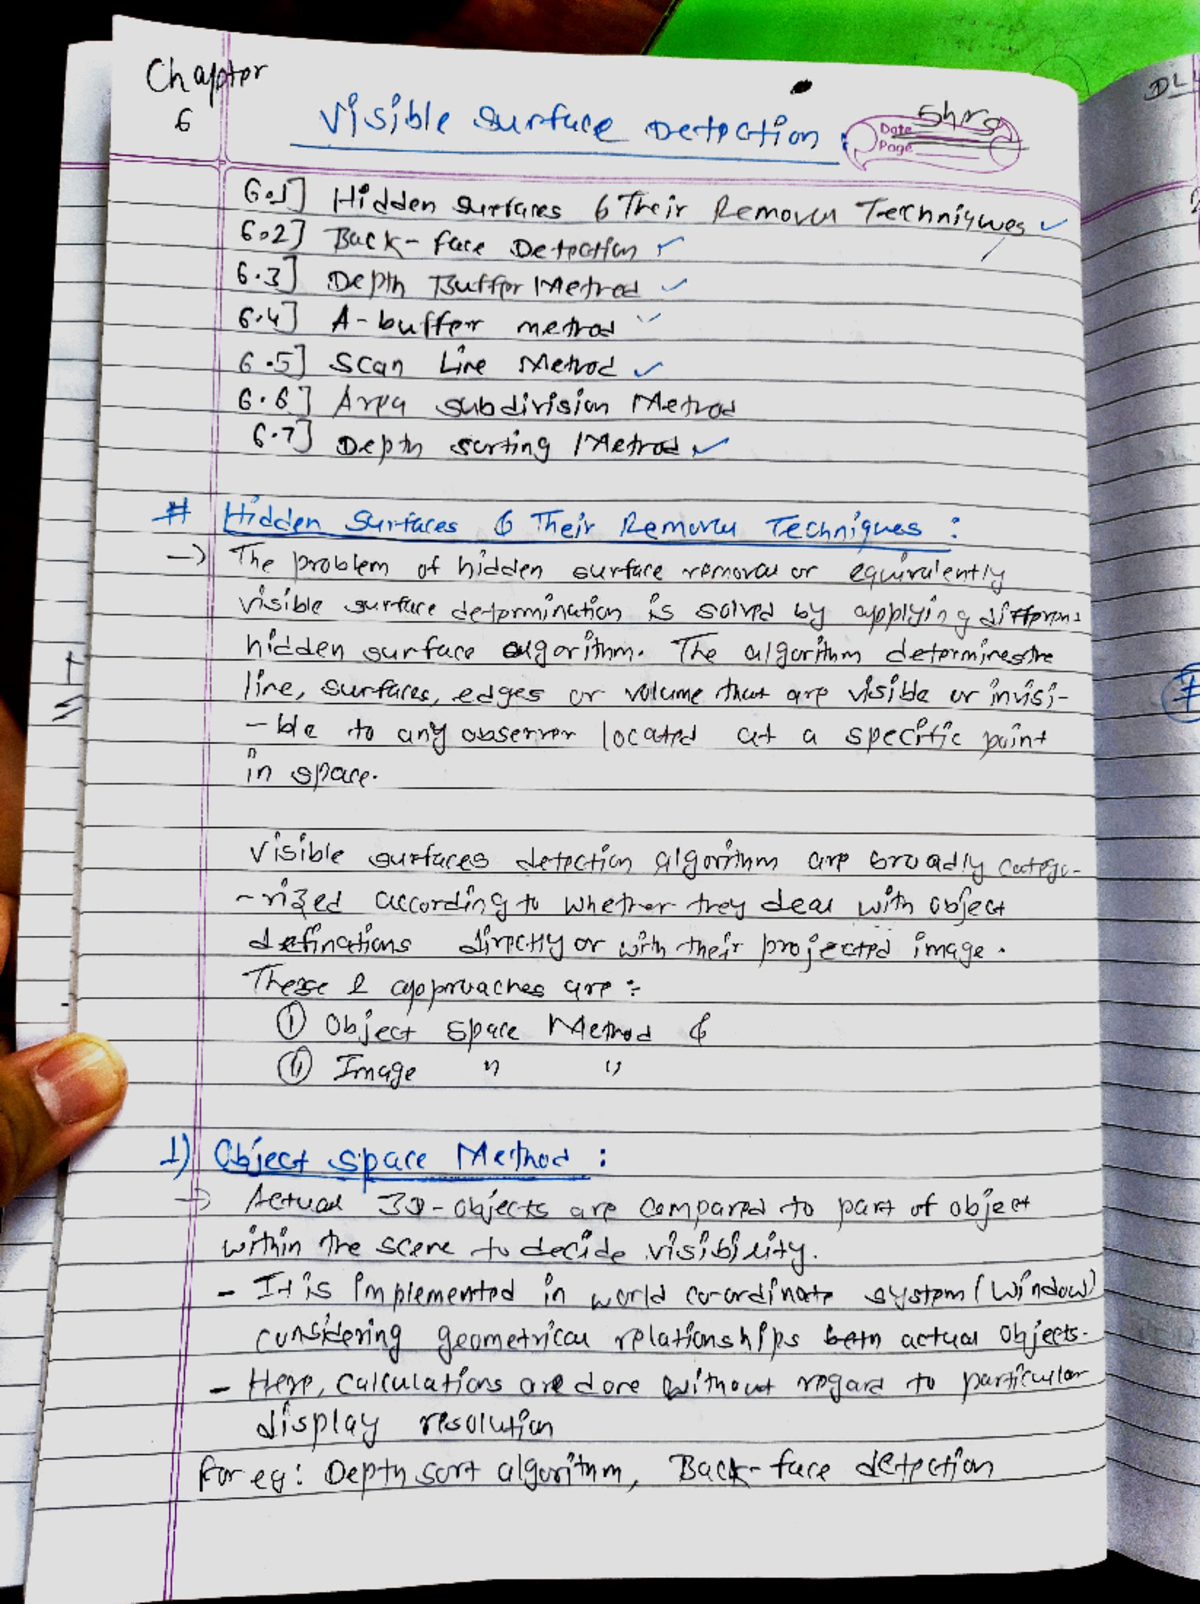 Chapter
6
Visible Surface Detection :
5hrs
Date
Page
6.1] Hidden Surfaces & Their Removal Techniques ✓
6.2] Back-face Detection ✓
6.3] Depth Buffer Method ✓
6.4] A-buffer method ✓
6.5] Scan Line Method ✓
6.6] Area subdivision Method
6.7] Depth sorting Method ✓
# Hidden Surfaces & Their Removal Techniques :
→ The problem of hidden surface removal or equivalently
visible surface determination is solved by applying different
hidden surface algorithm. The algorithm determines the
line, surfaces, edges or volume that are visible or invisi-
-ble to any observer located at a specific point
in space.
Visible surfaces detection algorithm are broadly catego-
-rized according to whether they deal with object
definations directly or with their projected image.
These 2 approaches are :
① Object Space Method &
② Image " "
1) Object space Method :
→ Actual 3D-objects are compared to part of object
within the scene to decide visibility.
- It is implemented in world co-ordinate system (Window)
considering geometrical relationships betn actual objects.
- Here, calculations are done without regard to particular
display resolution
For eg: Depth sort algorithm, Back-face detection
DL
#